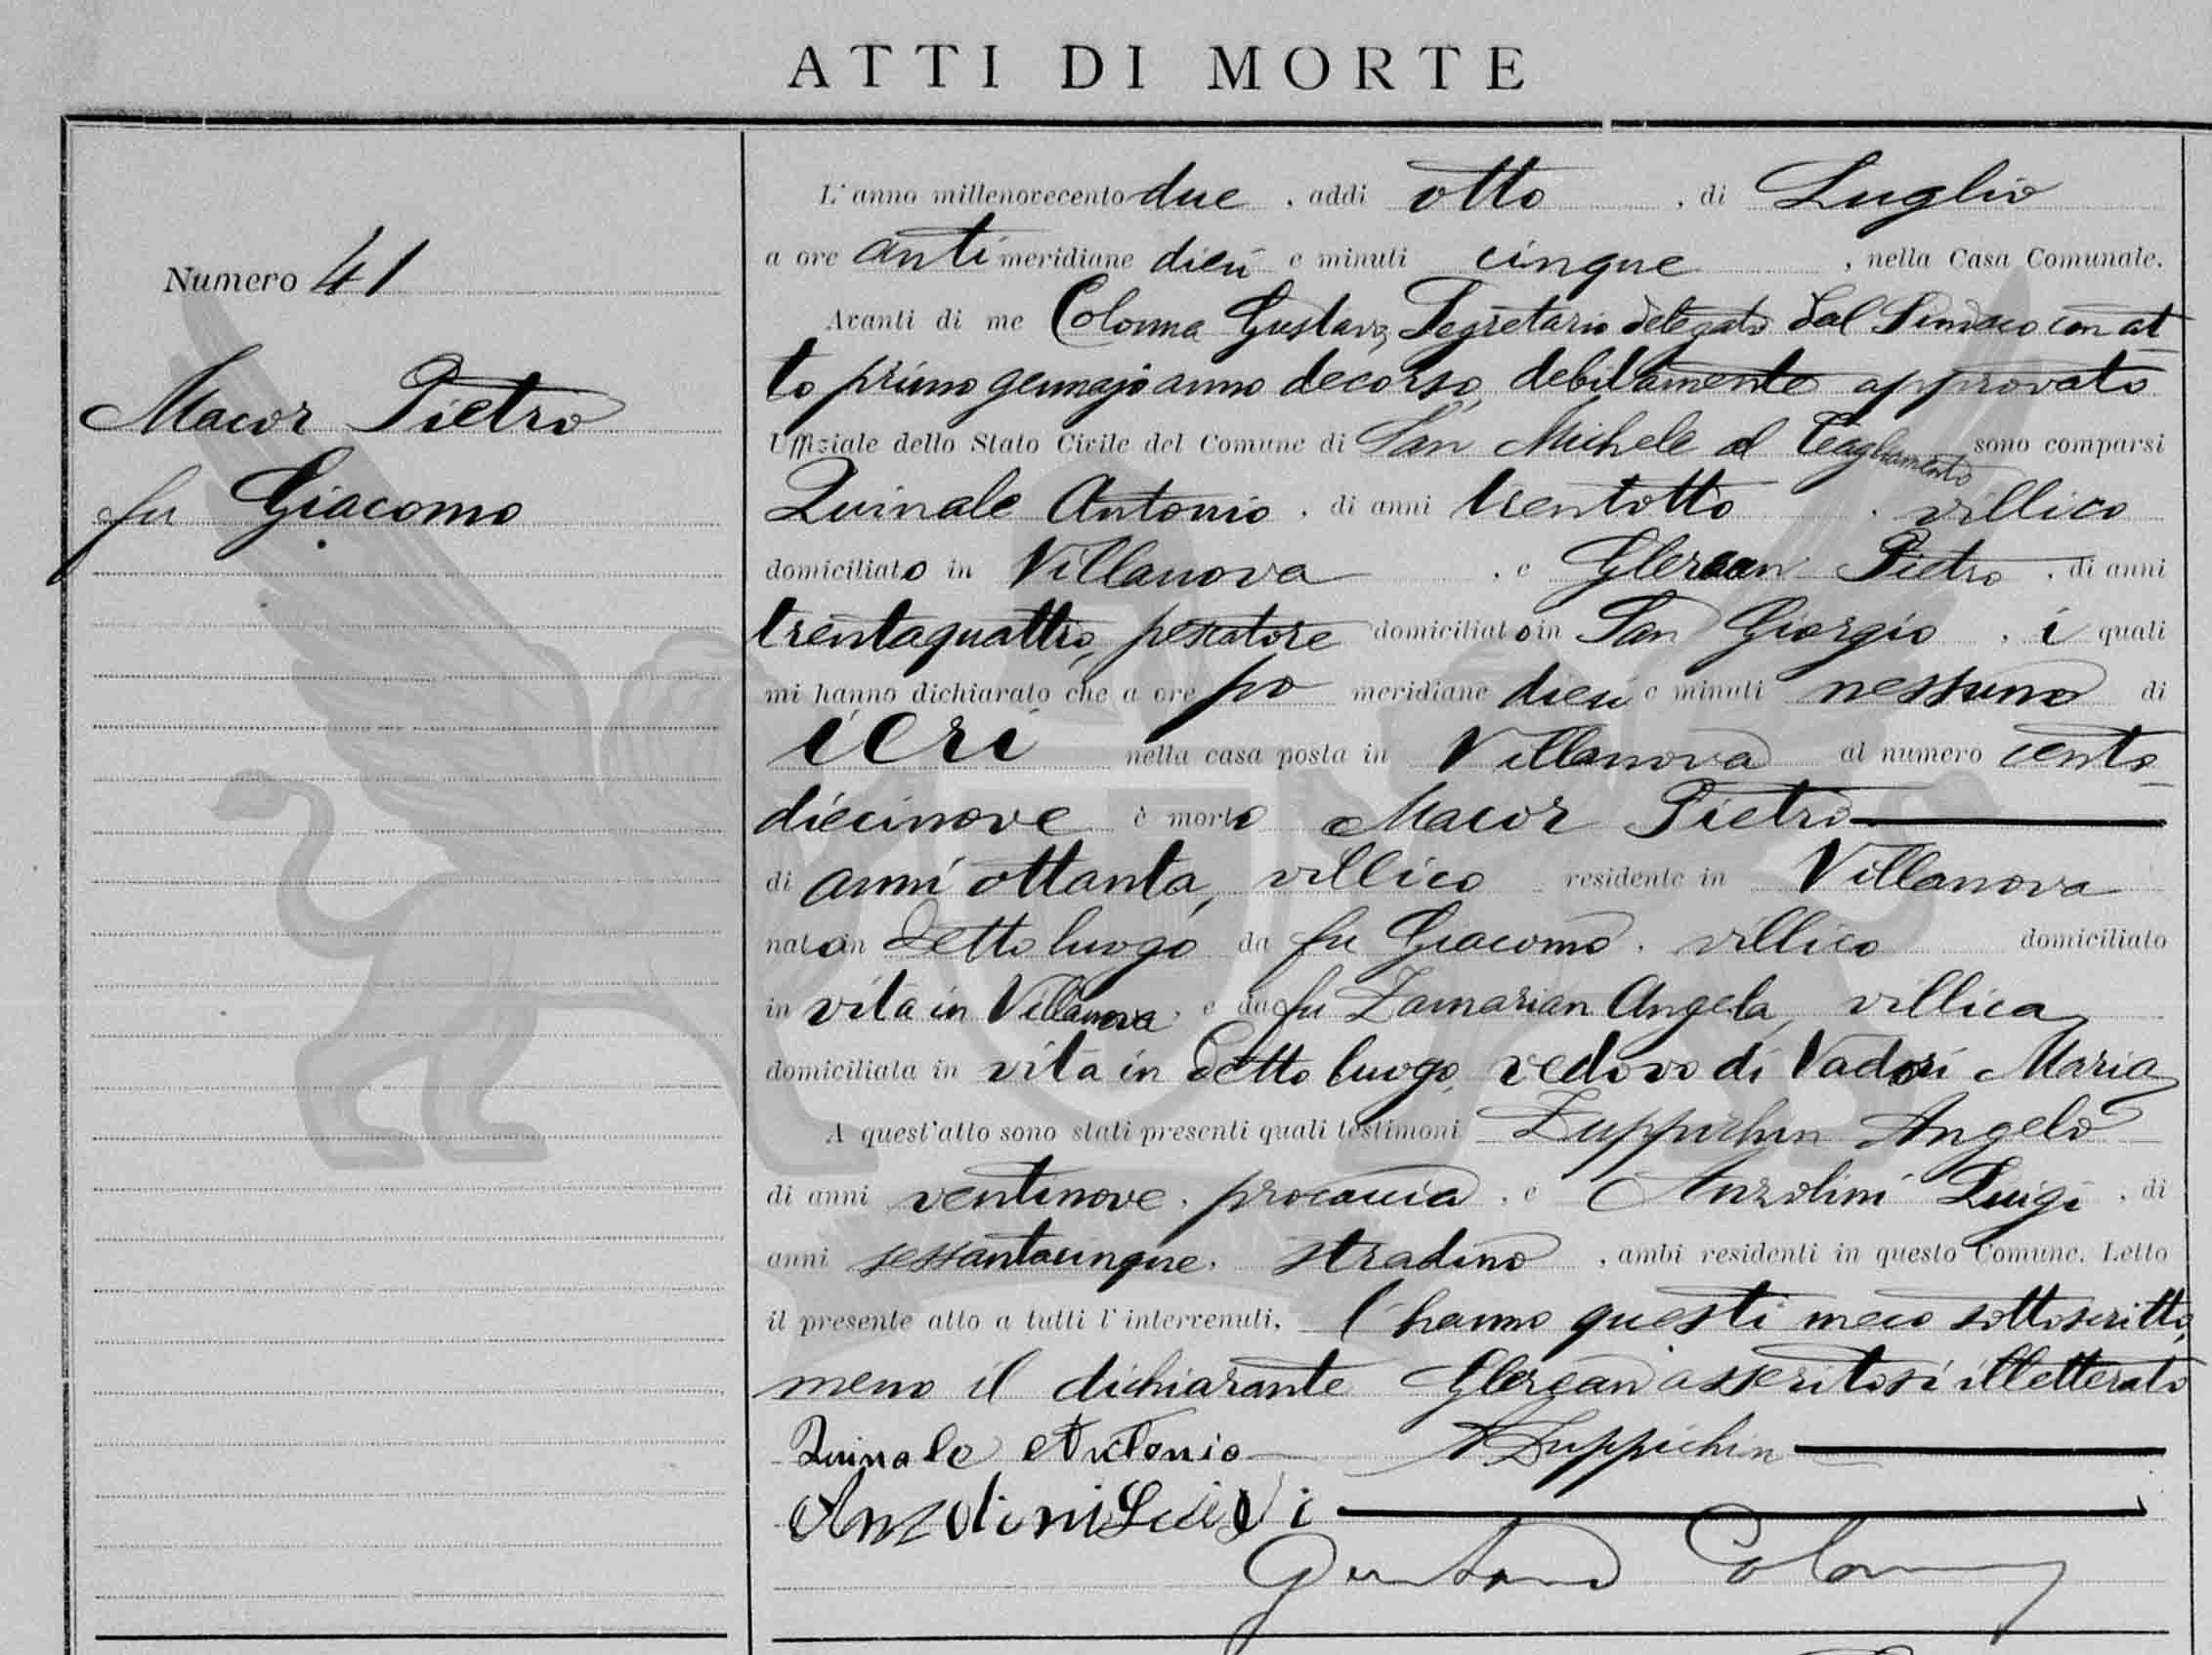 ATTI DI MORTE
Numero 41
Macor Pietro
fu Giacomo
L'anno millenovecento due, addi otto, di Luglio
a ore antimeridiane dieci e minuti cinque, nella Casa Comunale.
Avanti di me Colonna Gustavo, Segretario delegato dal Sindaco con at
to primo gennajo anno decorso, debitamente approvato
Uffiziale dello Stato Civile del Comune di San Michele al Tagliamento sono comparsi
Quinale Antonio, di anni trentotto, villico
domiciliato in Villanova, e Glerean Pietro, di anni
trentaquattro, pescatore domiciliato in San Giorgio, i quali
mi hanno dichiarato che a ore po meridiane dieci e minuti nessuno di
ieri nella casa posta in Villanova al numero cento
diecinove è morto Macor Pietro
di anni ottanta, villico residente in Villanova
nato in detto luogo da fu Giacomo, villico domiciliato
in vita in Villanova, e da fu Zamarian Angela, villica
domiciliata in vita in detto luogo, vedovo di Vadori Maria
A quest'atto sono stati presenti quali testimoni Zuppichin Angelo
di anni ventinove, procaccia, e Anzolini Luigi, di
anni sessantacinque, stradino, ambi residenti in questo Comune. Letto
il presente atto a tutti l'intervenuti, l'hanno questi meco sottoscritto,
meno il dichiarante Glerean asseritosi illetterato
Quinale Antonio A Zuppichin
Anzolini Luigi
Gustavo Colonna